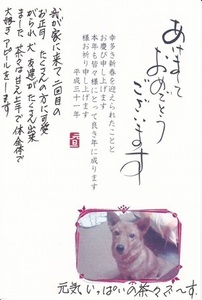 あけまして
おめでとう
ございます
幸多き新春を迎えられたことと
お慶び申し上げます
本年も皆々様にとって良き年に成ります
様お祈り申し上げます
平成三十一年
元旦
我が家に来て二回目の
お正月、たくさんの方に可愛
がられ犬友達がたくさん出来
ました 茶々は甘え上手で体全体で
大好きアピールをします
元気いっぱいの茶々で〜す